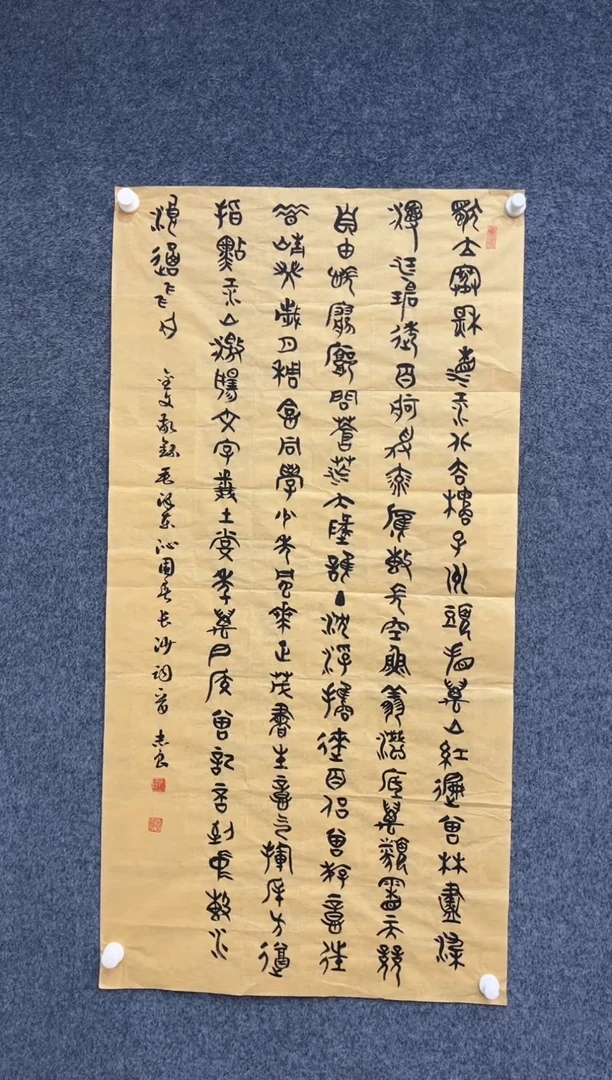 獨立寒秋湘江北去橘子洲頭看萬山紅遍曾林盡染
漫江碧透百舸爭流鷹擊長空魚翔淺底萬類霜天競
自由悵寥廓問蒼茫大地誰主沈浮攜來百侶曾游意往
昔崢嶸歲月稠恰同學少年風華正茂書生意气揮斥方遒
指點江山激揚文字糞土當年萬戶侯曾記否到中流擊水
浪遏飛舟 金文敬錄毛澤東沁園春長沙詞一首 志良